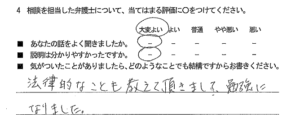 4 相談を担当した弁護士について、当てはまる評価に○をつけてください。
大変よい よい 普通 やや悪い 悪い
■ あなたの話をよく聞きましたか。 － － － － －
■ 説明は分かりやすかったですか。 － － － － －
■ 気がついたことがありましたら、どのようなことでも結構ですからお書きください。
法律的なことも教えて頂きまして、勉強に
なりました。